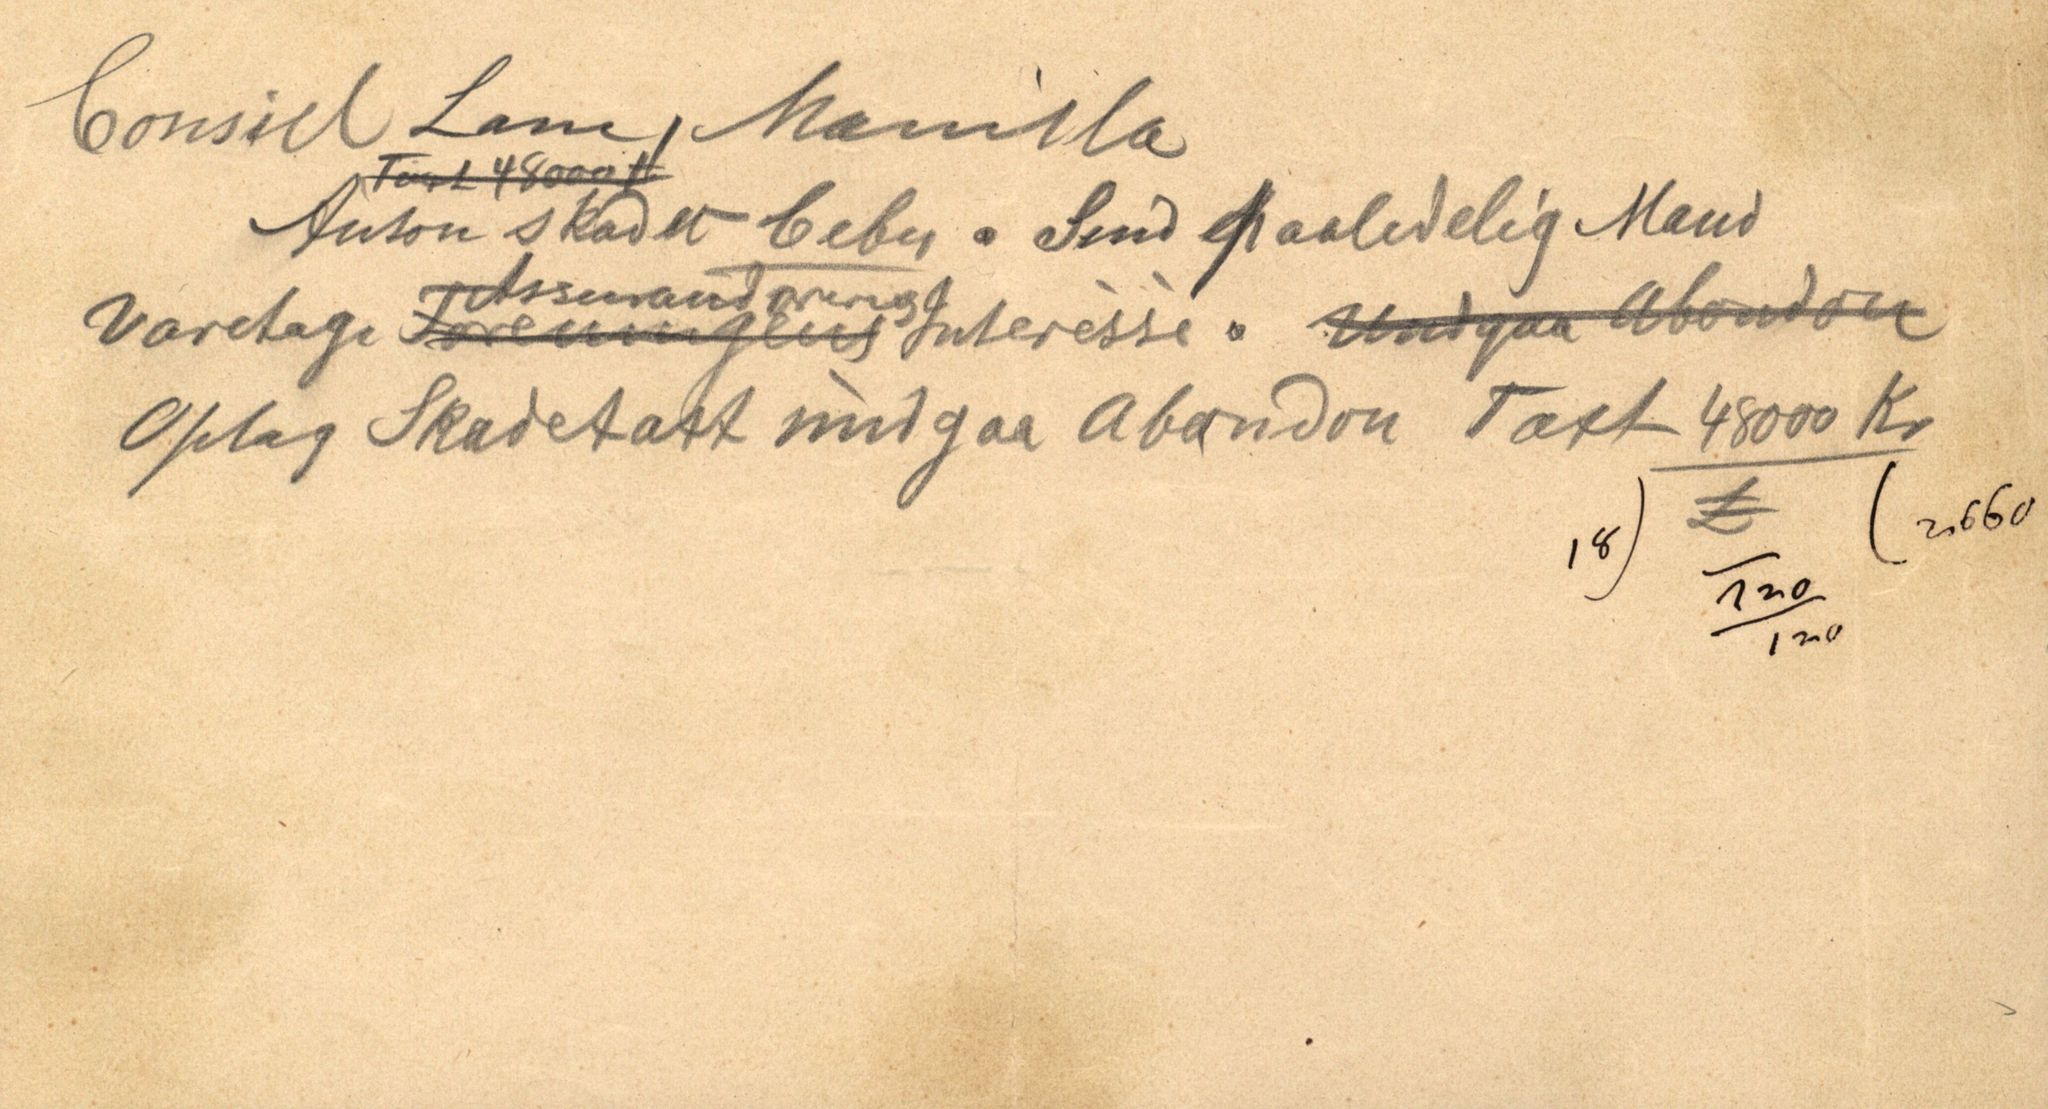 Consul Lane, Manilla
Taxt 48000 Kr
Anton skadet Cebu. Send paalidelig Mand
Assurandørernes
varetage Foreningens Interesse. Undgaa Abandon
Oplag Skadetaxt undgaa Abandon Taxt 48000 Kr
18) £ (2660
120
120